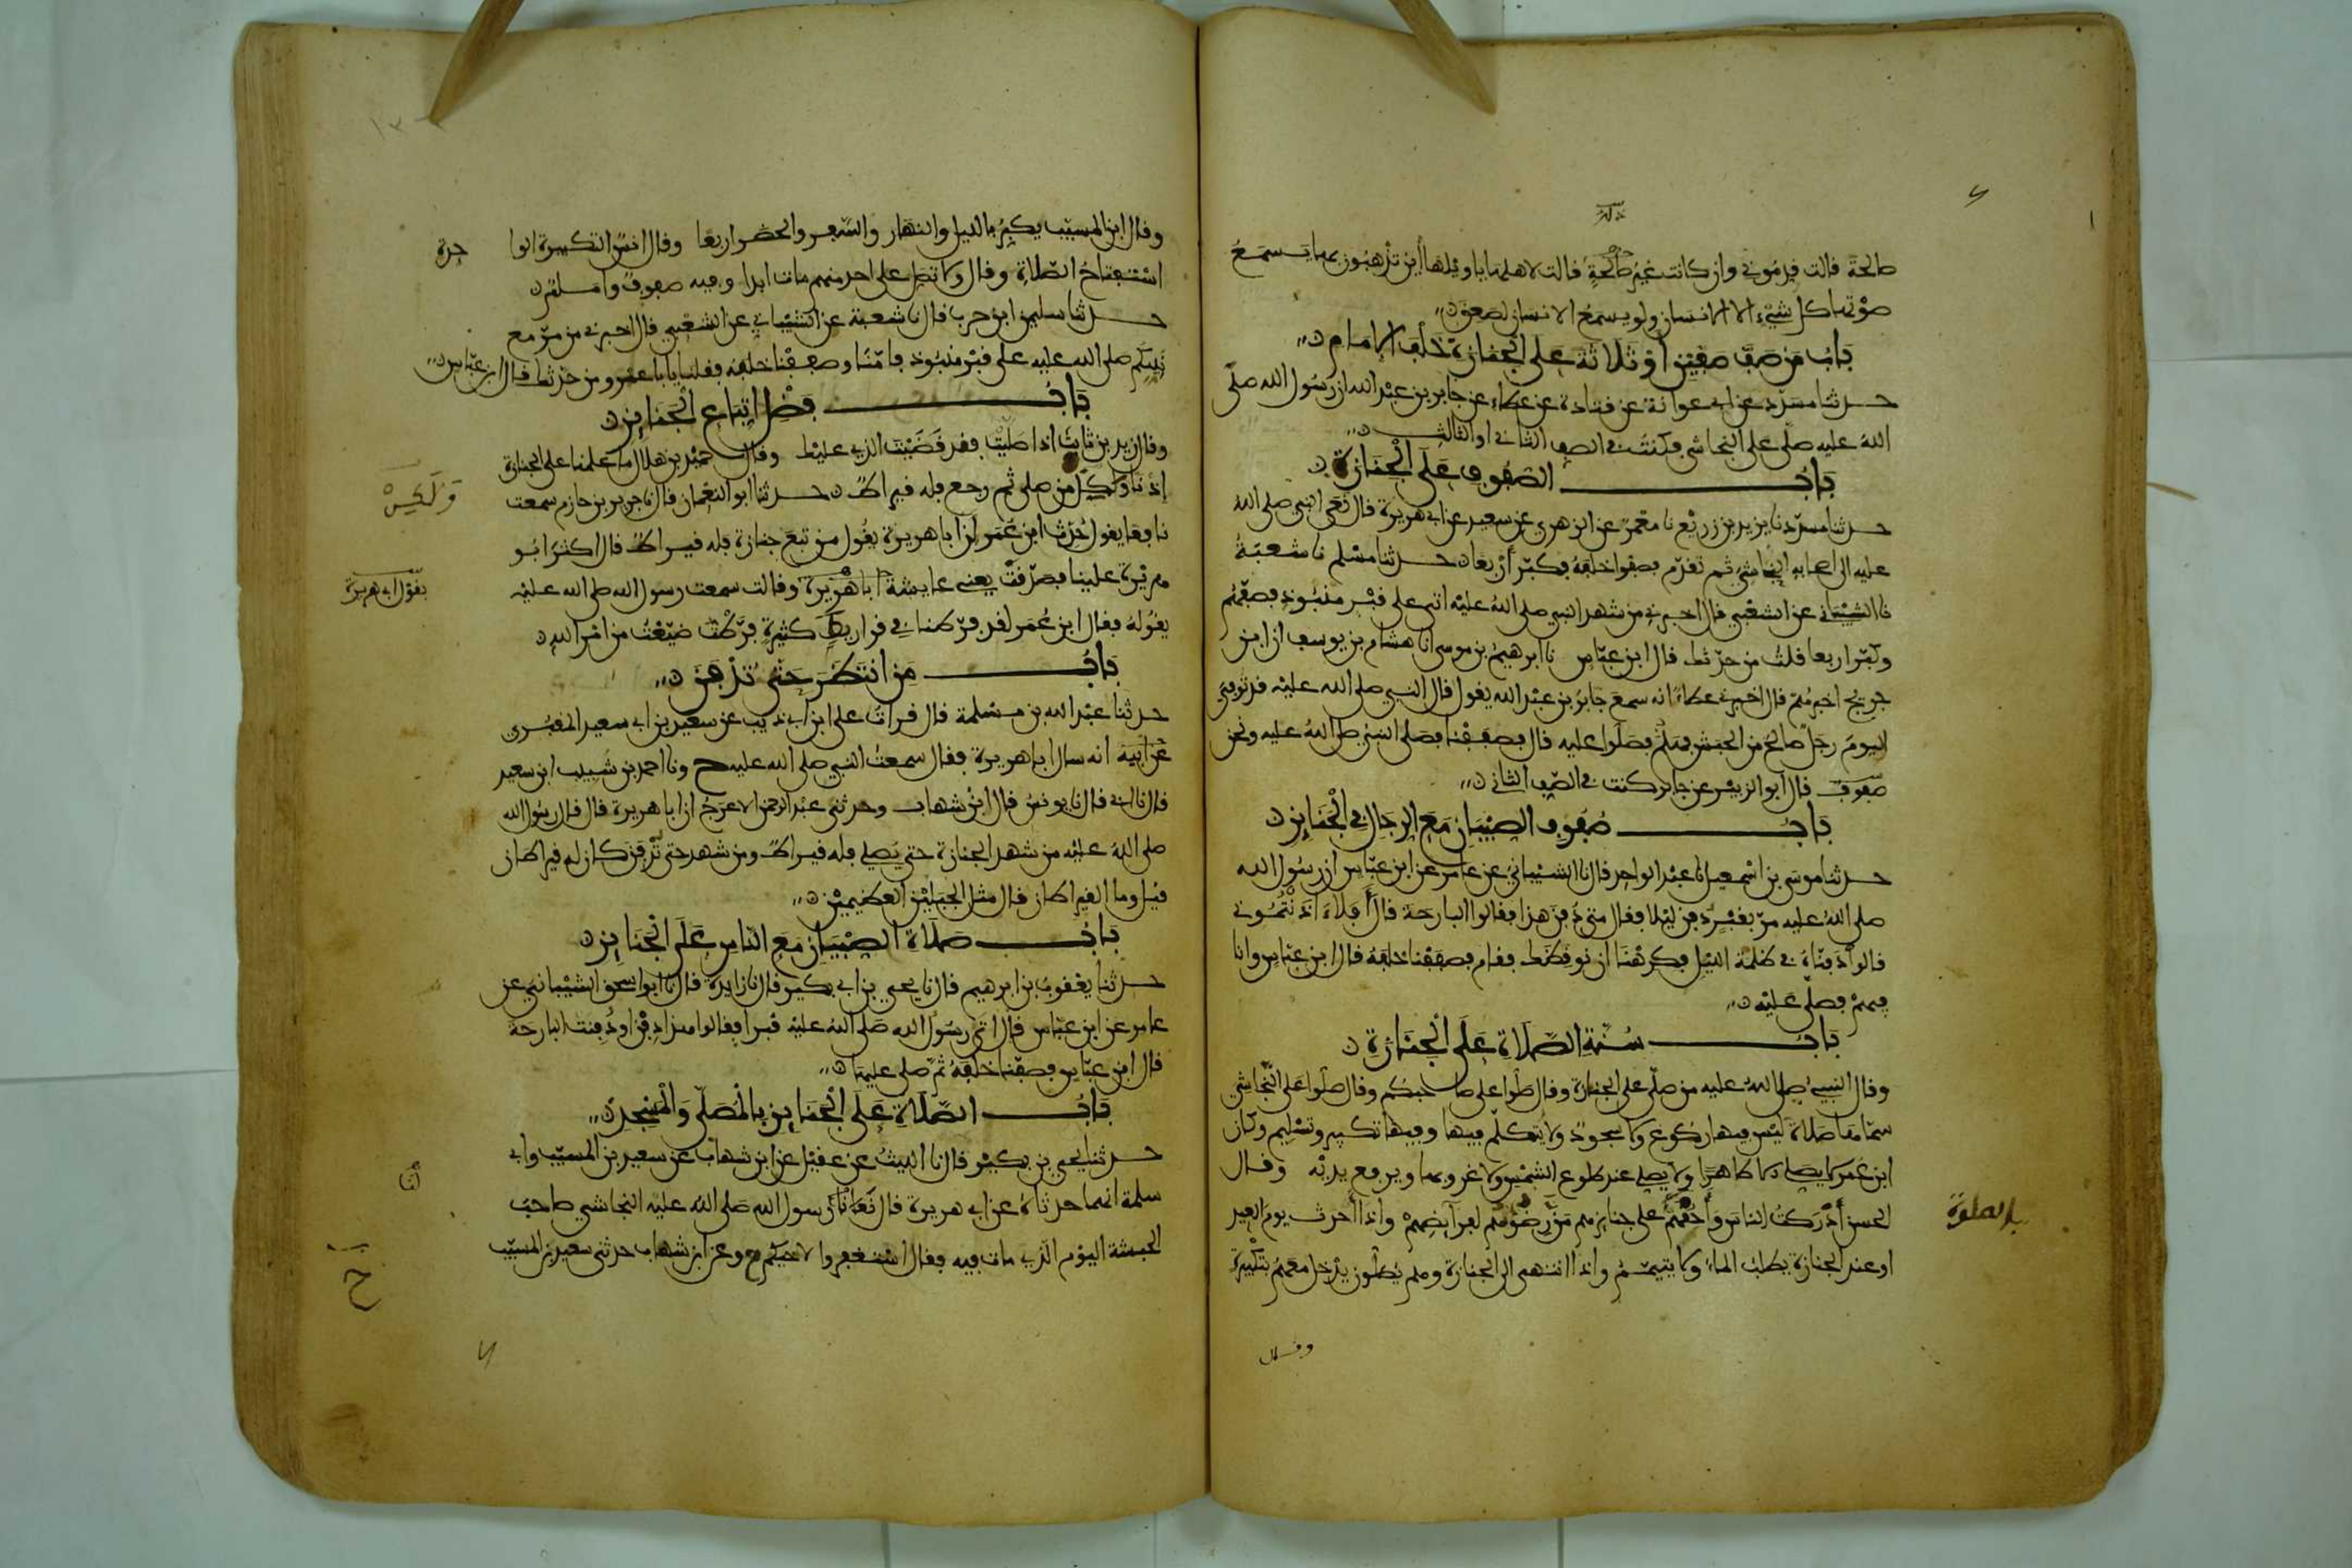 صالحة قالت قدموني وان كانت غير صالحة قالت لاهلها يا ويلها أين تذهبون بها يسمع
صوتها كل شيء الا الانسان ولو يسمع الانسان لصعق
باب من صف صفين أو ثلاثة على الجنازة خلف الامام
حدثنا مسدد عن ابي عوانة عن قتادة عن عطاء عن جابر بن عبد الله ان رسول الله صلى
الله عليه صلى على النجاشي فكنت في الصف الثاني او الثالث
باب الصفوف على الجنازة
حدثنا مسدد نا يزيد بن زريع نا معمر عن الزهري عن سعيد عن ابي هريرة قال نعى النبي صلى الله
عليه الى اصحابه النجاشي ثم تقدم فصفوا خلفه فكبر أربعا حدثنا مسلم نا شعبة
نا الشيباني عن الشعبي قال اخبرني من شهد النبي صلى الله عليه اتى على قبر منبوذ فصفهم
وكبر اربعا قلت من حدثك قال ابن عباس نا ابرهيم بن موسى انا هشام بن يوسف ان ابن
جريج اخبرهم قال اخبرني عطاء انه سمع جابر بن عبد الله يقول قال النبي صلى الله عليه قد توفي
اليوم رجل صالح من الحبش فهلم فصلوا عليه قال فصففنا فصلى النبي صلى الله عليه ونحن
صفوف قال أبو الزبير عن جابر كنت في الصف الثاني
باب صفوف الصبيان مع الرجال في الجنايز
حدثنا موسى بن اسمعيل نا عبد الواحد قال نا الشيباني عن عامر عن ابن عباس ان رسول الله
صلى الله عليه مر بقبر دفن ليلا فقال متى دفن هذا فقالوا البارحة قال أفلا اذنتموني
قالوا دفناه في ظلمة الليل فكرهنا ان نوقظك فقام فصففنا خلفه قال ابن عباس وانا
فيهم فصلى عليه
باب سنة الصلاة على الجنازة
وقال النبي صلى الله عليه من صلى على الجنازة وقال صلوا على صاحبكم وقال صلوا على النجاشي
سماها صلاة ليس فيها ركوع ولا سجود ولا يتكلم فيها وفيها تكبير وتسليم وكان
ابن عمر لا يصلي الا طاهرا ولا يصلي عند طلوع الشمس ولا غروبها ويرفع يديه وقال
الحسن أدركت الناس وأحقهم على جنايزهم من رضوهم لفرايضهم واذا أحدث يوم العيد
بالصلوة
او عند الجنازة يطلب الماء ولا يتيمم واذا انتهى الى الجنازة وهم يصلون يدخل معهم بتكبيرة
وقال
وقال ابن المسيب يكبر بالليل والنهار والسفر والحضر اربعا وقال انس التكبيرة الوا
حدة
استفتاح الصلاة وقال ولا تصل على احد منهم مات ابدا وفيه صفوف وامام
حدثنا سليمن ابن حرب قال نا شعبة عن الشيباني عن الشعبي قال اخبرني من مر مع
نبيكم صلى الله عليه على قبر منبوذ فامنا وصففنا خلفه فقلنا يا با عمرو من حدثك قال ابن عباس
باب فضل اتباع الجنايز
وقال زيد بن ثابت اذا صليت فقد قضيت الذي عليك وقال حميد بن هلال ما علمنا على الجنازة
إذنا ولكن من صلى ثم رجع فله قيراط حدثنا ابو النعمان قال نا جرير بن حازم سمعت
ولكن
نافعا يقول حدث ابن عمر ان ابا هريرة يقول من تبع جنازة فله قيراط قال اكثر ابو
هريرة علينا فصدقت يعني عايشة ابا هريرة وقالت سمعت رسول الله صلى الله عليه
بقول ابي هريرة
يقوله فقال ابن عمر لقد فرطنا في قراريط كثيرة فرطت ضيعت من امر الله
باب من انتظر حتى تدفن
حدثنا عبد الله بن مسلمة قال قرات على ابن ابي ذيب عن سعيد بن ابي سعيد المقبري
عن ابيه انه سال ابا هريرة فقال سمعت النبي صلى الله عليه ح ونا احمد بن شبيب ابن سعيد
قال نا ابي قال نا يونس قال ابن شهاب وحدثني عبد الرحمن الاعرج ان ابا هريرة قال قال رسول الله
صلى الله عليه من شهد الجنازة حتى يصلي فله قيراط ومن شهد حتى تدفن كان له قيراطان
قيل وما القيراطان قال مثل الجبلين العظيمين
باب صلاة الصبيان مع الناس على الجنايز
حدثنا يعقوب بن ابرهيم قال نا يحيى بن ابي بكير قال نا زايدة قال نا ابو اسحق الشيباني عن
عامر عن ابن عباس قال اتى رسول الله صلى الله عليه قبرا فقالوا هذا دفن او دفنت البارحة
قال ابن عباس فصفنا خلفه ثم صلى عليها
باب الصلاة على الجنايز بالمصلى والمسجد
حدثنا يحيى بن بكير قال نا الليث عن عقيل عن ابن شهاب عن سعيد بن المسيب وابي
سلمة انهما حدثاه عن ابي هريرة قال نعا لنا رسول الله صلى الله عليه النجاشي صاحب
الحبشة اليوم الذي مات فيه فقال استغفروا لاخيكم ح وعن ابن شهاب حدثني سعيد بن المسيب
ح